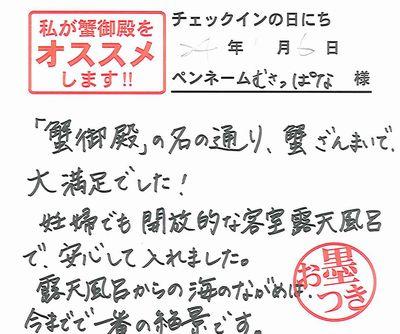 私が蟹御殿を
オススメ
します!!
チェックインの日にち
24年1月6日
ペンネームむさっぱな 様
「蟹御殿」の名の通り、蟹ざんまいで、
大満足でした!
妊婦でも開放的な客室露天風呂
で、安心して入れました。
露天風呂からの海のながめは、
今までで一番の絶景です。
お墨つき